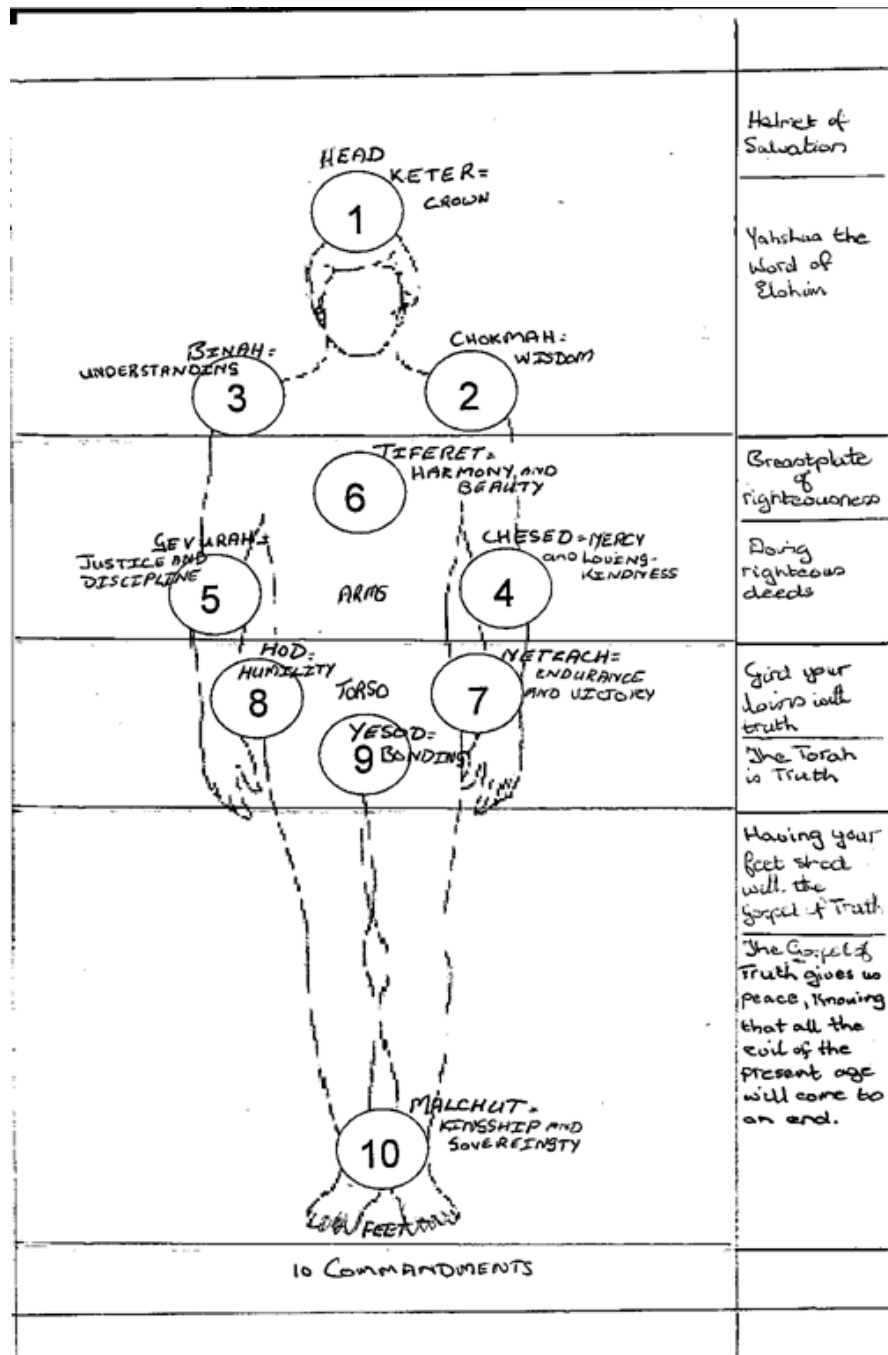 HEAD
KETER=
CROWN
1
BINAH=
UNDERSTANDING
3
CHOKMAH=
WISDOM
2
TIFERET=
HARMONY AND
BEAUTY
6
GEVURAH=
JUSTICE AND
DISCIPLINE
5
ARMS
CHESED=MERCY
and LOVING-
KINDNESS
4
HOD=
HUMILITY
8
TORSO
NETZACH=
ENDURANCE
AND VICTORY
7
YESOD=
BONDING
9
MALCHUT=
KINGSHIP AND
SOVEREINGTY
10
FEET
10 COMMANDMENTS
Helmet of
Salvation
Yahshua the
Word of
Elohim
Breastplate
of
righteousness
Doing
righteous
deeds
Gird your
loins with
truth
The Torah
is Truth
Having your
feet shod
with the
Gospel of Truth
The Gospel of
Truth gives us
peace, Knowing
that all the
evil of the
present age
will come to
an end.